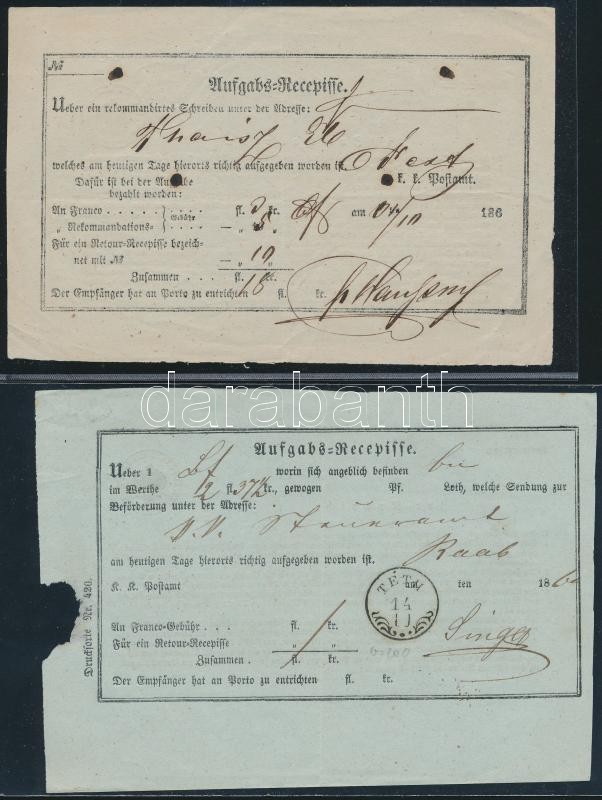 №
Aufgabs-Recepisse.
Ueber ein rekommandirtes Schreiben unter der Adresse:
Pest
welches am heutigen Tage hierorts richtig aufgegeben worden ist.
Dafür ist bei der Aufgabe K. k. Postamt.
bezahlt worden:
An Franco . . . . . Gebühr . . . . fl. 3 kr. am 186
„ Rekommandations- — „ 5 „
Für ein Retour-Recepisse bezeich-
net mit № — „ 10 „
Zusammen . . . . fl. 18 kr.
Der Empfänger hat an Porto zu entrichten fl. kr.
darabanth
Aufgabs-Recepisse.
Ueber 1 Bf worin sich angeblich befinden
im Werthe fl. kr., gewogen Pf. Loth, welche Sendung zur
Beförderung unter der Adresse:
Steueramt
Raab
am heutigen Tage hierorts richtig aufgegeben worden ist.
K. K. Postamt am ten 186
TÉTH
14
11
An Franco-Gebühr . . . fl. kr.
Für ein Retour-Recepisse „ „
Zusammen . fl. kr.
Singer
Der Empfänger hat an Porto zu entrichten fl. kr.
Drucksorte Nr. 420.